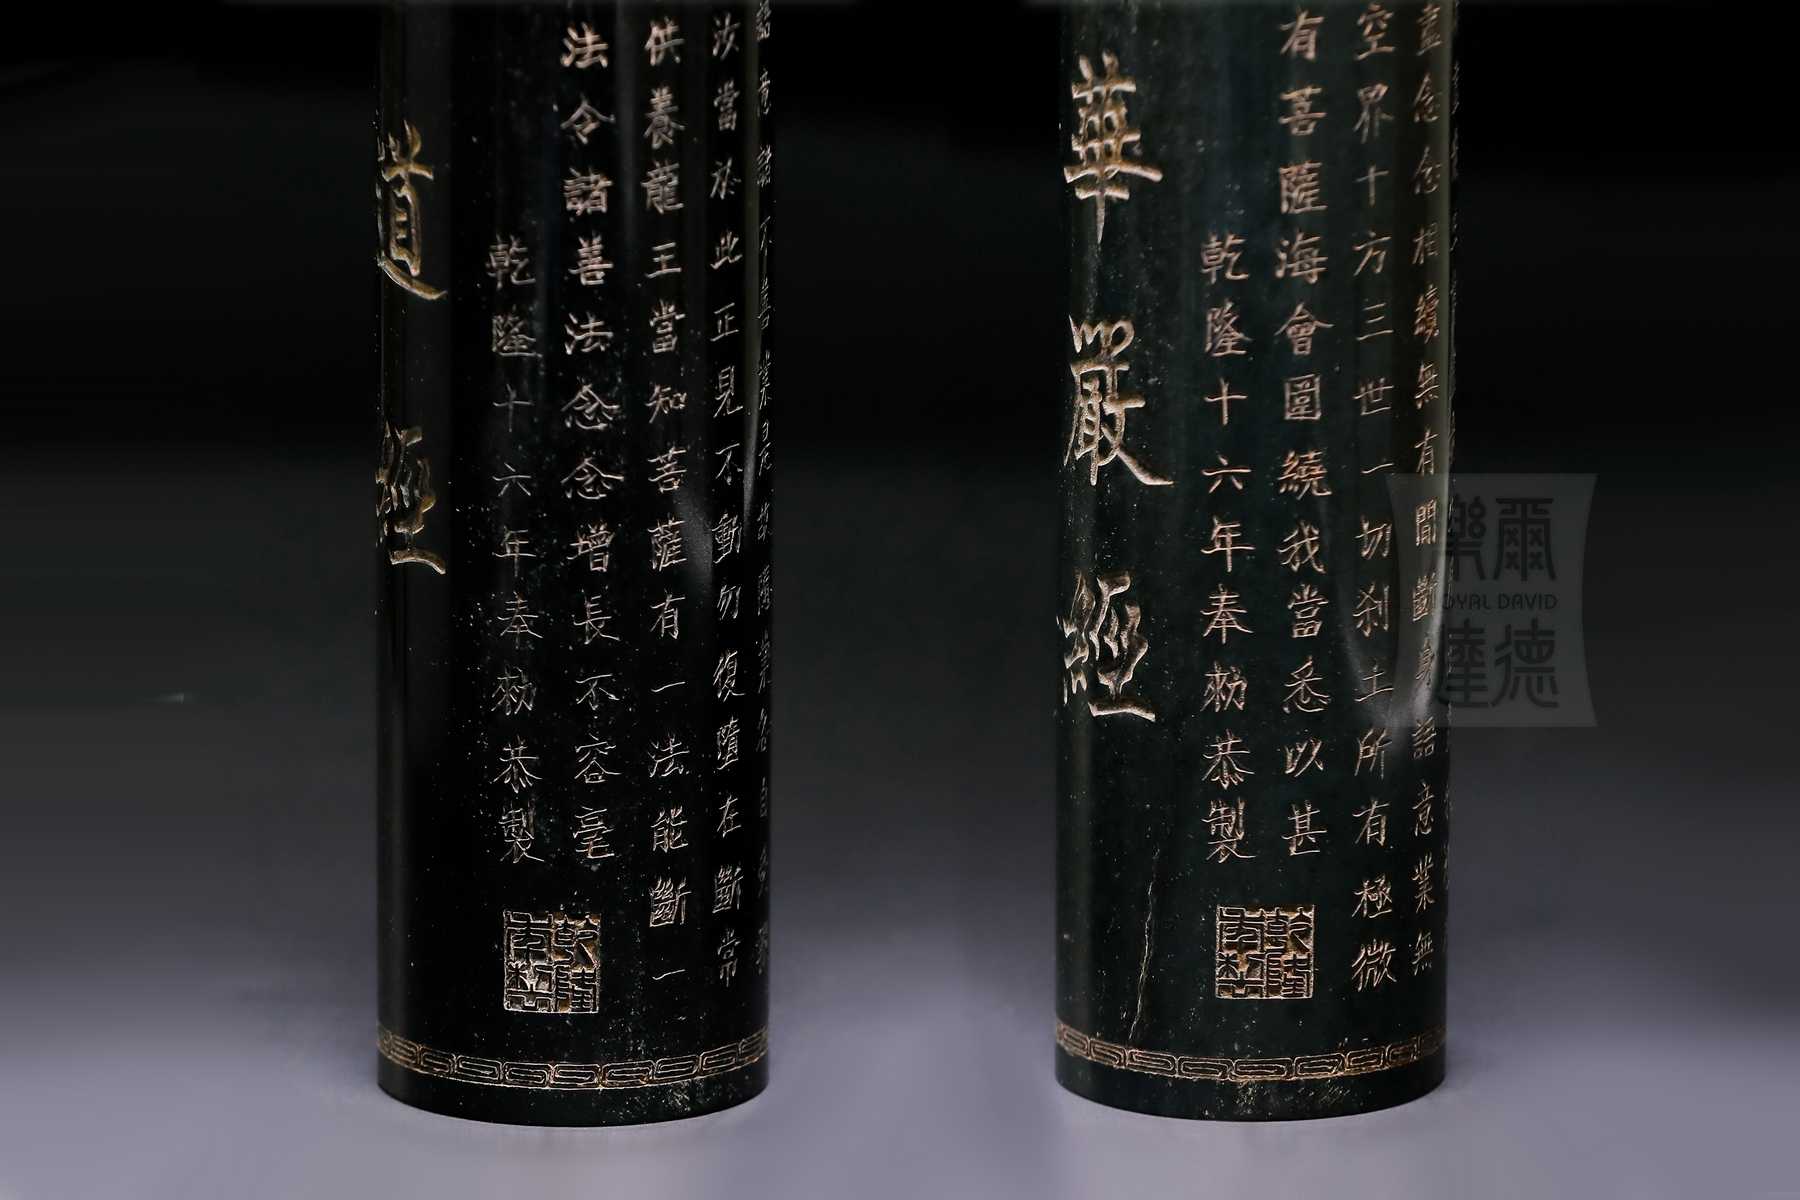 道經
乾隆十六年奉勅恭製
法令諸善法念念增長不容毫
供養龍王當知菩薩有一法能斷一
汝當於此正見不動勿復墮在斷常
乾隆
年製
華嚴經
乾隆十六年奉勅恭製
有菩薩海會圍繞我當悉以甚
空界十方三世一切剎土所有極微
盡念念相續無有間斷身語意業無
乾隆
年製
樂爾
ROYAL DAVID
達德